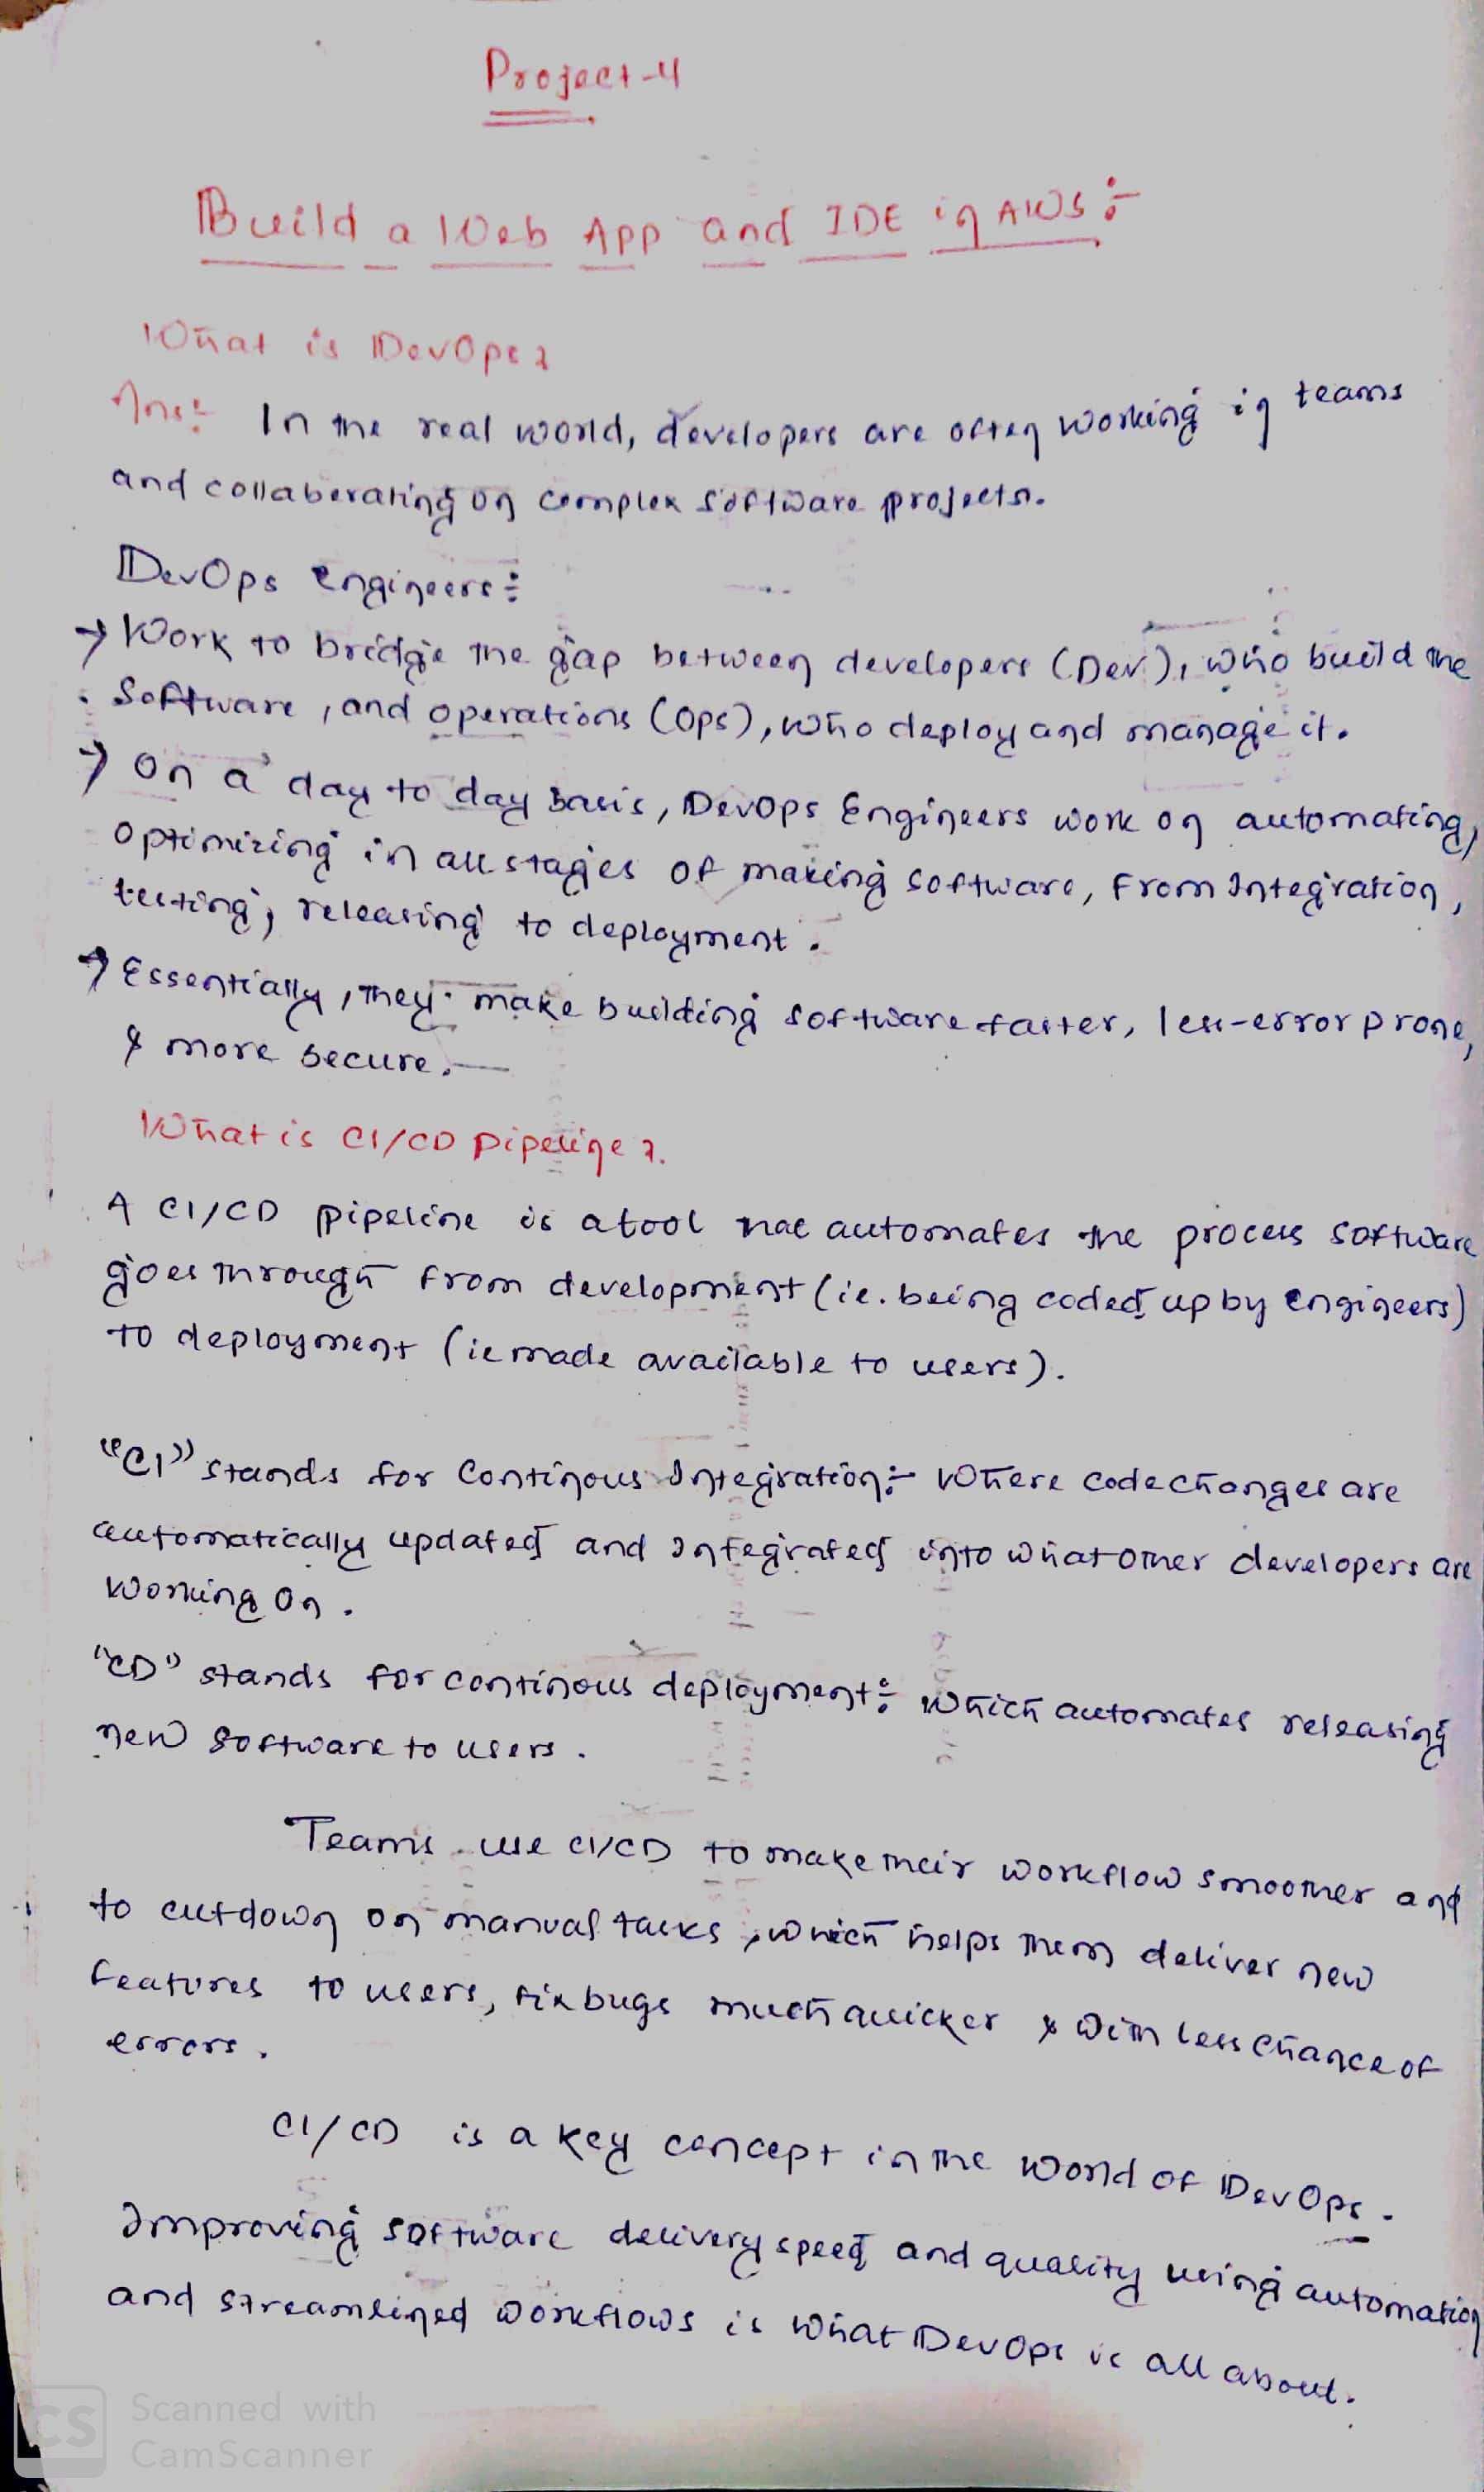 Project-4
Build a Web App and IDE in AWS :-
What is DevOps ?
Ans:- In the real world, developers are often working in teams
and collaberating on complex software projects.
DevOps Engineers :-
→ Work to bridge the gap between developers (Dev), who build the
Software, and operations (Ops), who deploy and manage it.
→ On a day to day basis, DevOps Engineers work on automating,
optimizing in all stages of making software, From Integration,
testing, releasing to deployment.
→ Essentially, they make building software faster, less-error prone,
& more secure.
What is CI/CD pipeline ?.
A CI/CD pipeline is a tool that automates the process software
goes through from development (ie. being coded up by engineers)
to deployment (ie made available to users).
"CI" stands for Continous Integration:- Where code changes are
automatically updated and Integrated into what other developers are
working on.
"CD" stands for continous deployment:- which automates releasing
new software to users.
Teams use CI/CD to make their workflow smoother and
to cutdown on manual tasks, which helps them deliver new
features to users, fix bugs much quicker & with less chance of
errors.
CI/CD is a key concept in the world of DevOps.
Improving software delivery speed and quality using automation
and streamlined workflows is what DevOps is all about.
CS Scanned with
CamScanner